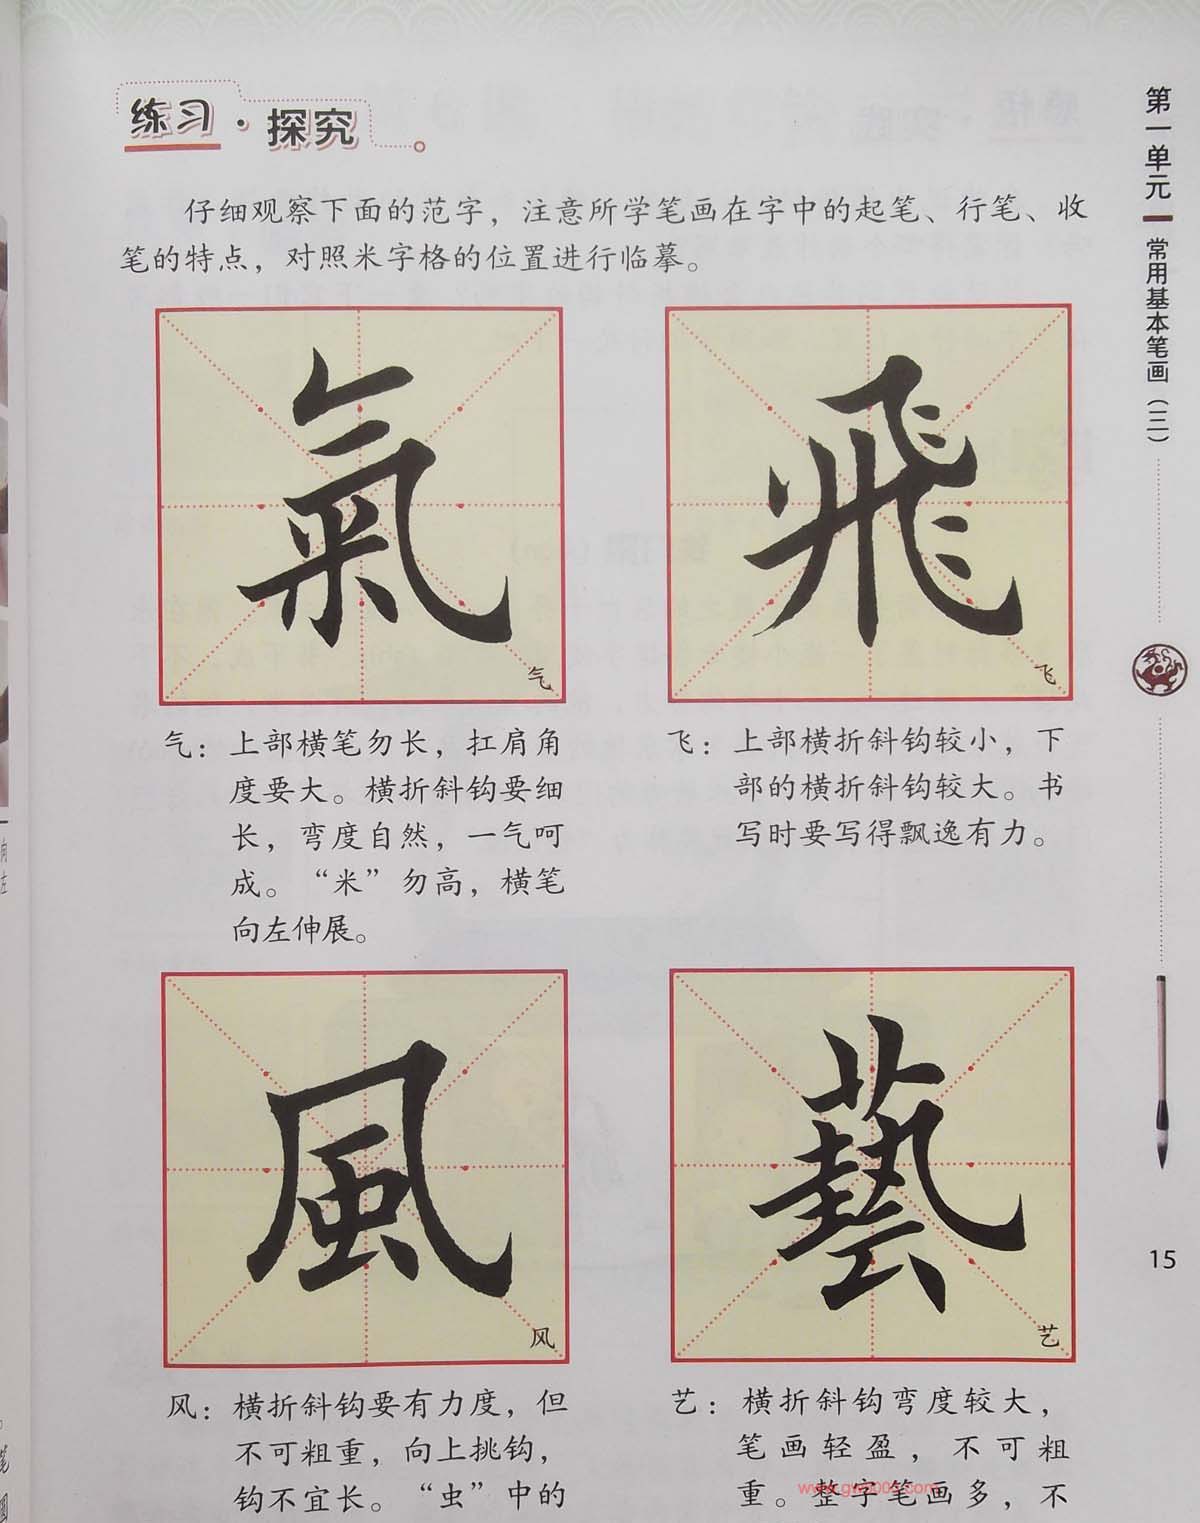 练习·探究
仔细观察下面的范字，注意所学笔画在字中的起笔、行笔、收
笔的特点，对照米字格的位置进行临摹。
氣
气
飛
飞
气：上部横笔勿长，扛肩角
度要大。横折斜钩要细
长，弯度自然，一气呵
成。“米”勿高，横笔
向左伸展。
飞：上部横折斜钩较小，下
部的横折斜钩较大。书
写时要写得飘逸有力。
風
风
藝
艺
风：横折斜钩要有力度，但
不可粗重，向上挑钩，
钩不宜长。“虫”中的
艺：横折斜钩弯度较大，
笔画轻盈，不可粗
重。整字笔画多，不
第一单元
常用基本笔画（三）
15
向
左
笔
圆